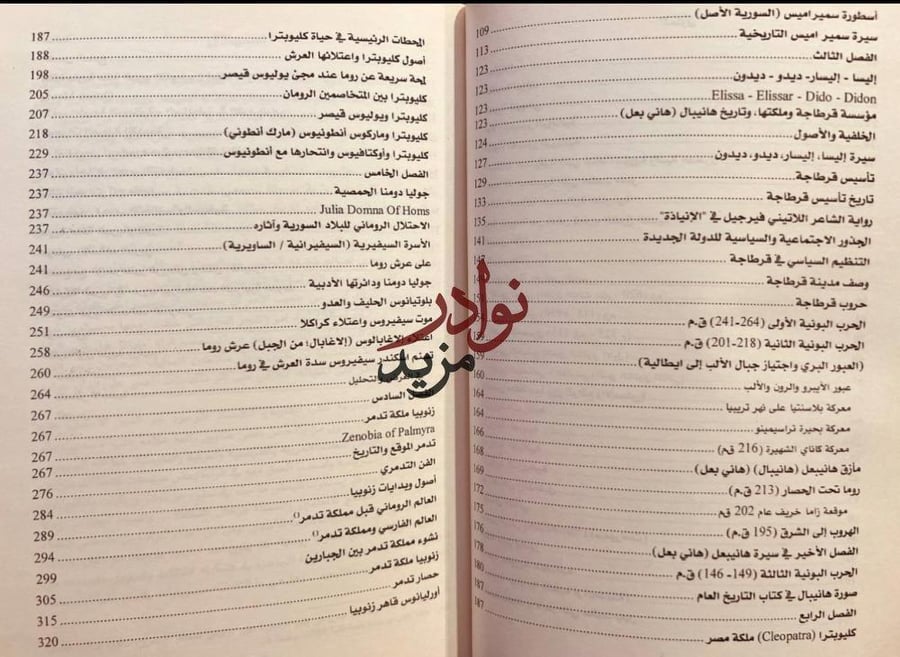 أسطورة سميراميس (السورية الأصل)
سيرة سمير اميس التاريخية 109
الفصل الثالث 113
إليسا - إليسار- ديدو - ديدون 123
Elissa - Elissar - Dido - Didon 123
مؤسسة قرطاجة وملكتها، وتاريخ هانيبال (هاني بعل) 123
الخلفية والأصول 123
سيرة إليسا، إليسار، ديدو، ديدون 124
تأسيس قرطاجة 127
تاريخ تأسيس قرطاجة 129
رواية الشاعر اللاتيني فيرجيل في "الإنياذة" 133
الجذور الاجتماعية والسياسية للدولة الجديدة 135
التنظيم السياسي في قرطاجة 141
وصف مدينة قرطاجة 147
حروب قرطاجة
الحرب البونية الأولى (264-241) ق.م
الحرب البونية الثانية (218-201) ق.م
(العبور البري واجتياز جبال الألب إلى ايطالية)
عبور الأيبرو والرون والألب 160
معركة بلاسنتيا على نهر تريبيا 164
معركة بحيرة تراسيمينو 164
معركة كاناي الشهيرة (216 ق.م) 166
مأزق هانيبعل (هانيبال) (هاني بعل) 168
روما تحت الحصار (213 ق.م) 169
موقعة زاما خريف عام 202 ق.م 172
الهروب إلى الشرق (195 ق.م) 175
الفصل الأخير في سيرة هانيبعل (هاني بعل) 176
الحرب البونية الثالثة (149- 146) ق.م 178
صورة هانيبال في كتاب التاريخ العام 180
الفصل الرابع 187
كليوبترا (Cleopatra) ملكة مصر 187
المحطات الرئيسية في حياة كليوبترا 187
أصول كليوبترا واعتلائها العرش 188
لمحة سريعة عن روما عند مجئ يوليوس قيصر 198
كليوبترا بين المتخاصمين الرومان 205
كليوبترا ويوليوس قيصر 207
كليوبترا وماركوس أنطونيوس (مارك أنطوني) 218
كليوبترا وأوكتافيوس وانتحارها مع أنطونيوس 229
الفصل الخامس 237
جوليا دومنا الحمصية 237
Julia Domna Of Homs 237
الاحتلال الروماني للبلاد السورية وآثاره 237
الأسرة السيفيرية (السيفيرانية / الساويرية) 241
على عرش روما 241
جوليا دومنا ودائرتها الأدبية 246
بلوتيانوس الحليف والعدو 249
موت سيفيروس واعتلاء كراكلا 251
اعتلاء إلاغابالوس (إلاغابال: من الجبل) عرش روما 258
تسنم اسكندر سيفيروس سدة العرش في روما 260
والتحليل 264
الفصل السادس 267
زنوبيا ملكة تدمر 267
Zenobia of Palmyra 267
تدمر الموقع والتاريخ 267
الفن التدمري 276
أصول وبدايات زنوبيا 284
العالم الروماني قبل مملكة تدمر 289
العالم الفارسي ومملكة تدمر 294
نشوء مملكة تدمر بين الجبارين 299
زنوبيا ملكة تدمر 305
حصار تدمر 315
أورليانوس قاهر زنوبيا 320
نوادر
مزيد